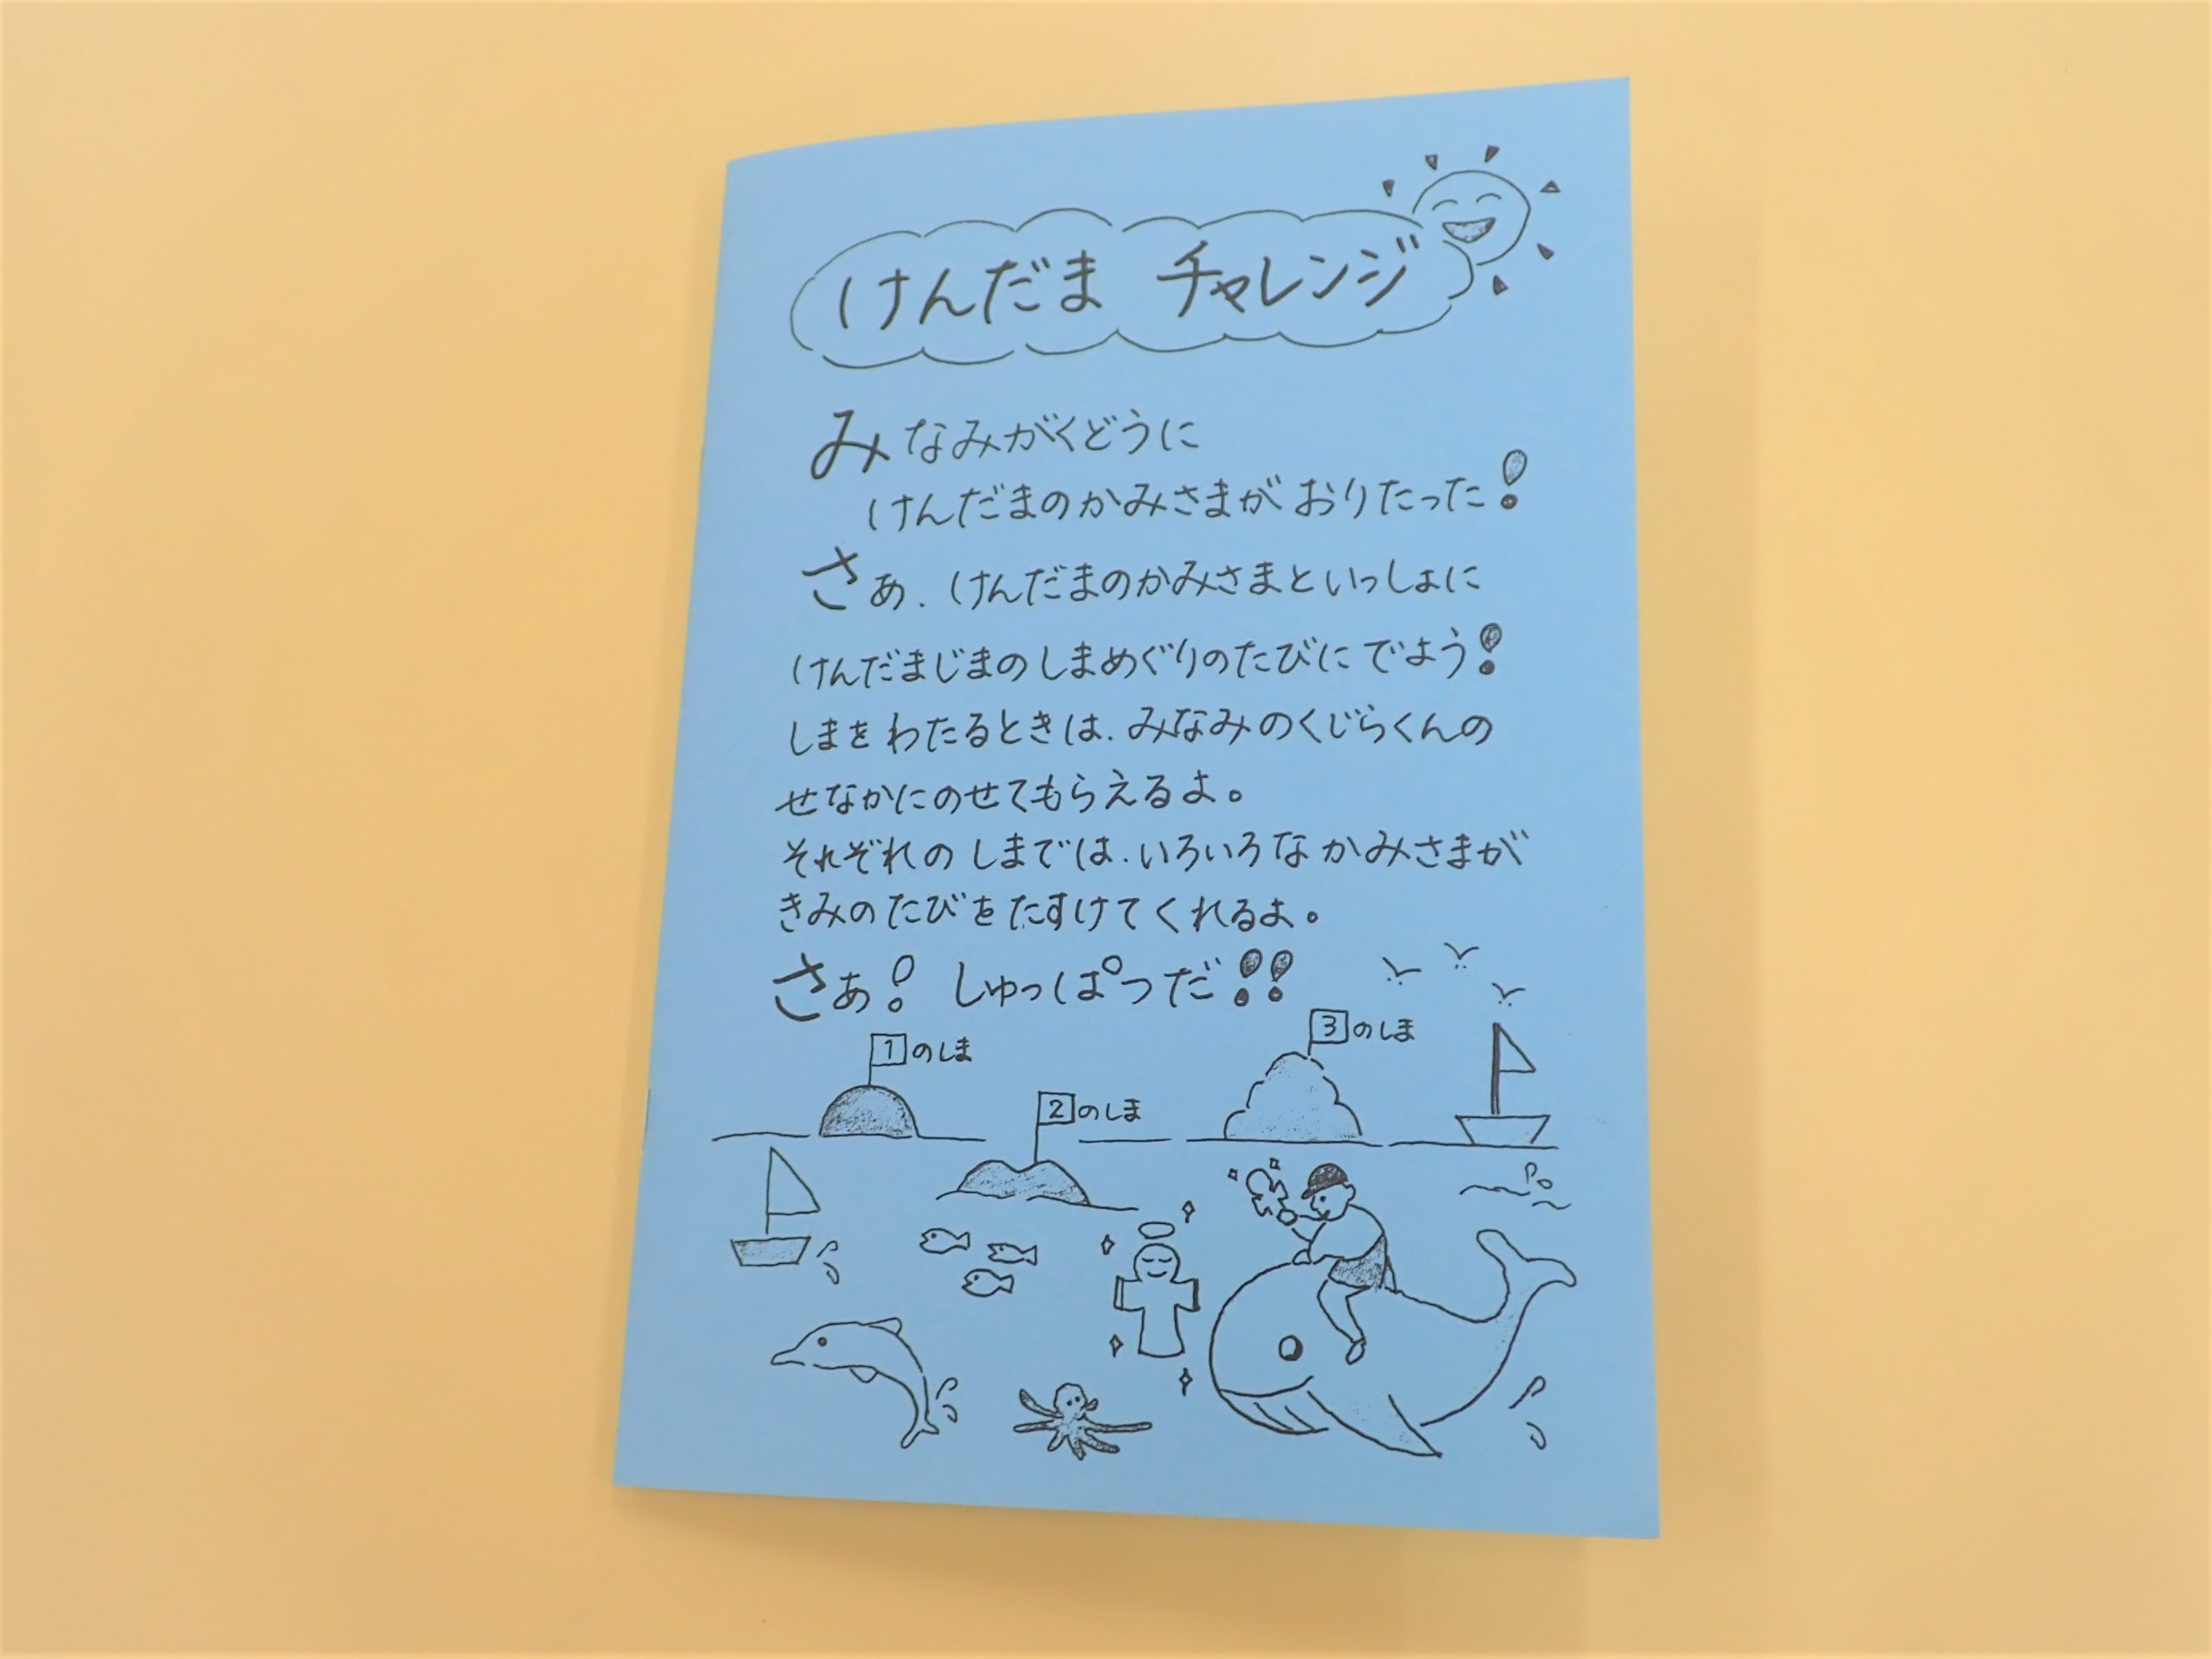 けんだま チャレンジ
みなみがくどうに
けんだまのかみさまが おりたった!
さぁ、けんだまのかみさまといっしょに
けんだまじまのしまめぐりのたびに でよう!
しまを わたるときは、みなみのくじらくんの
せなかにのせてもらえるよ。
それぞれの しまでは、いろいろな かみさまが
きみの たびを たすけてくれるよ。
さぁ! しゅっぱつだ!!
1のしま
3のしま
2のしま